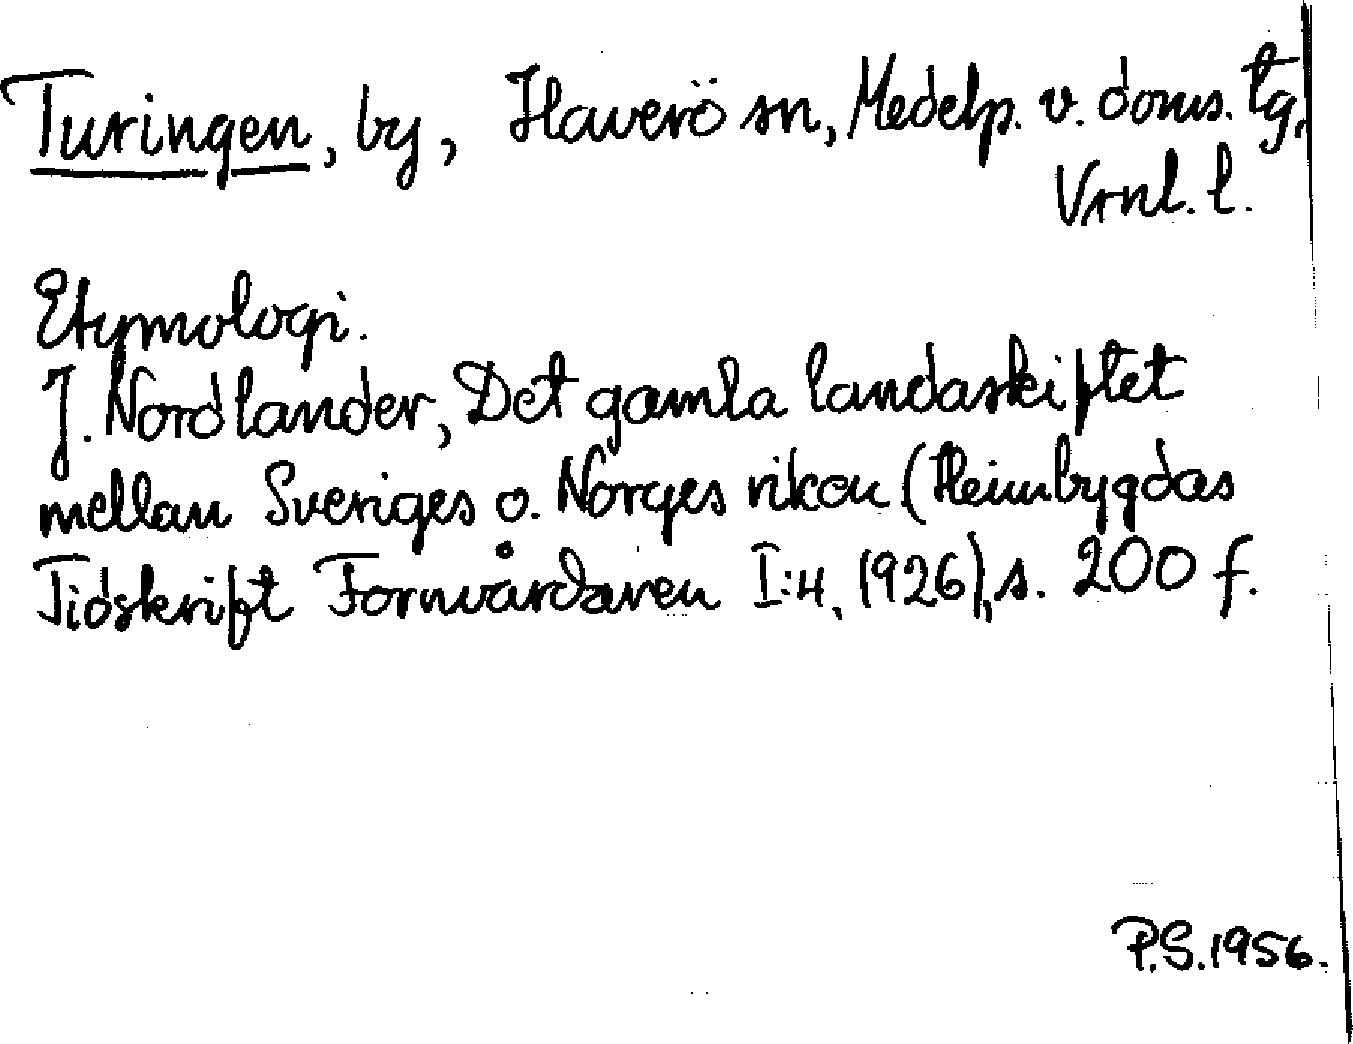 Turingen, by, Haverö sn, Medelp. v. doms. tg,
Vrnl. l.
Etymologi.
J. Nordlander, Det gamla landaskiftet
mellan Sveriges o. Norges riken (Heimbygdas
Tidskrift Fornvårdaren I:4, 1926), s. 200 f.
P.S. 1956.